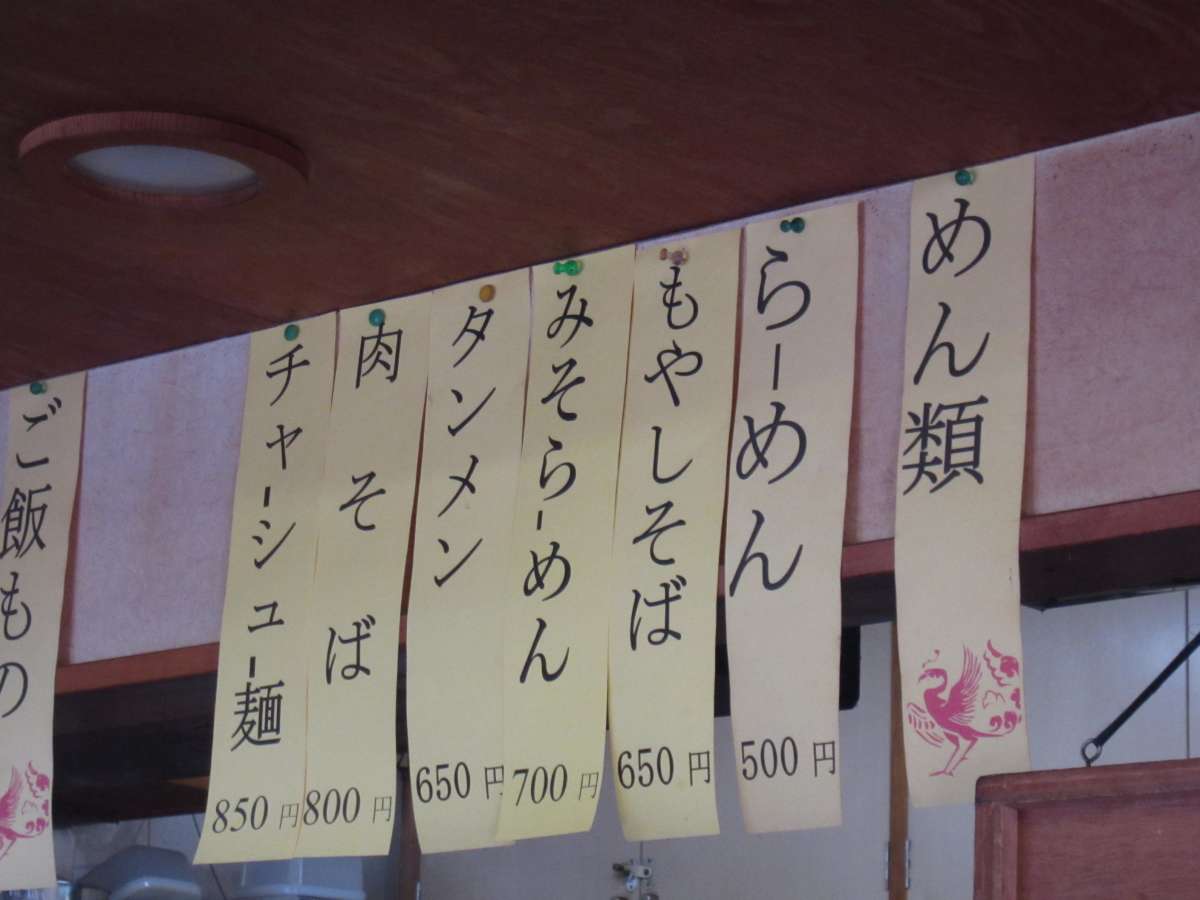 めん類
らーめん
500円
もやしそば
650円
みそらーめん
700円
タンメン
650円
肉そば
800円
チャーシュー麺
850円
ご飯もの